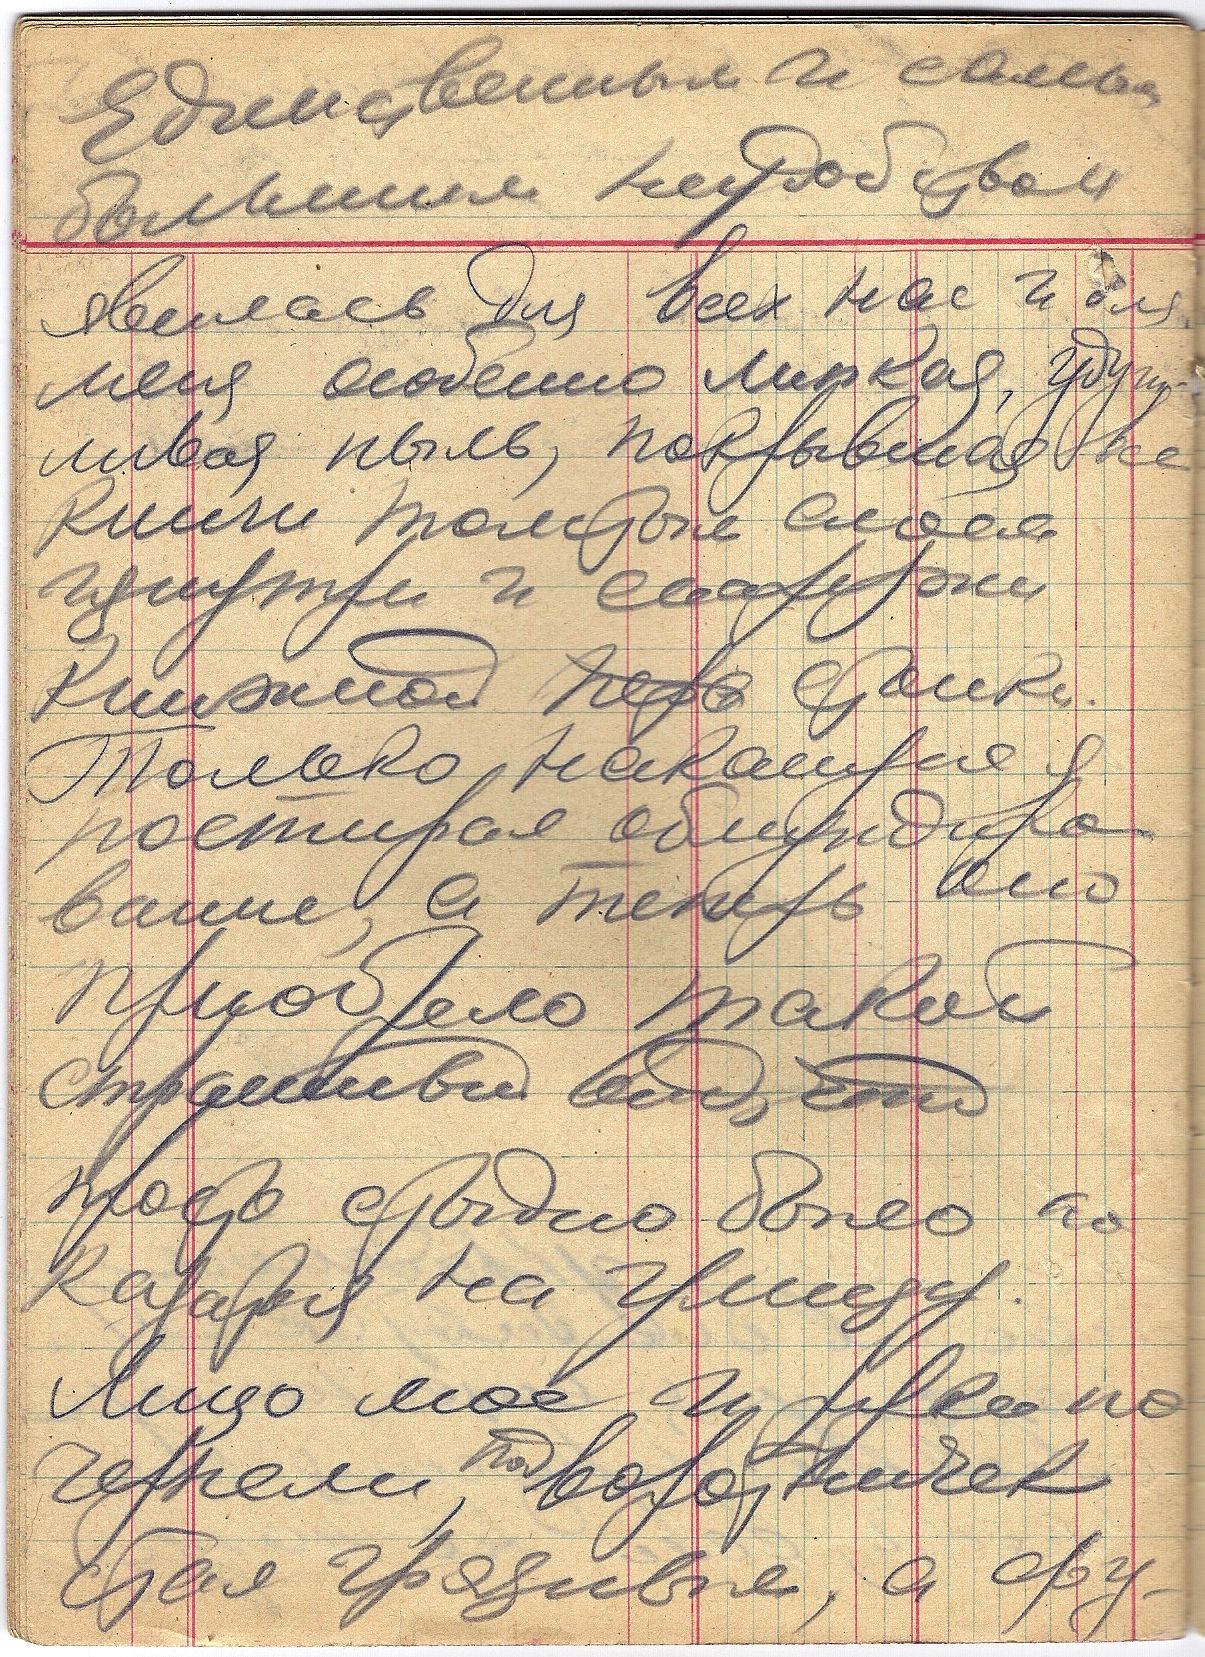 Единственным и самым
большим неудобством
явилась для всех нас и для
меня особенно липкая, удуш-
ливая пыль, покрывшая не
книги толстым слоем
изнутри и снаружи
книжной стопки.
Только накануне я
постирал обмундиро-
вание, а теперь оно
приобрело такой
страшный вид, что
просто стыдно было по
казаться на улицу.
Лицо мое и руки по
чернели, подворотничек
стал грязным, а фу-